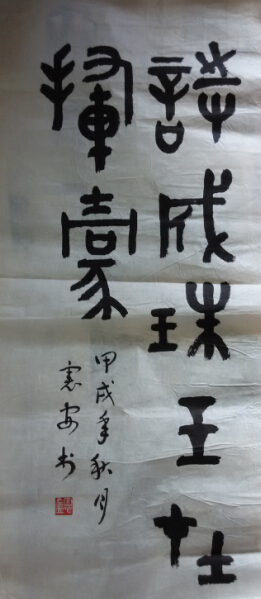 詩成珠玉在
揮毫
甲戌年秋月
安书